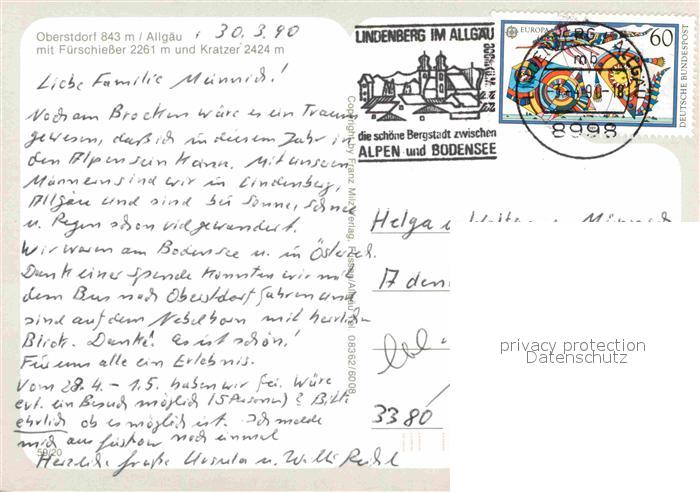 Oberstdorf 843 m / Allgäu
mit Fürschießer 2261 m und Kratzer 2424 m
30.3.90
Liebe Familie Münnich!
Noch am Brocken wäre es ein Traum
gewesen, daß ich in diesem Jahr in
den Alpen sein kann. Mit unseren
Männern sind wir in Lindenberg,
Allgäu und sind bei Sonne, Schnee
u. Regen schon viel gewandert.
Wir waren am Bodensee u. in Österreich.
Dank einer Spende konnten wir mit
dem Bus nach Oberstdorf fahren und
sind auf dem Nebelhorn mit herrlichem
Blick. Danke! es ist schön!
Für uns alle ein Erlebnis.
Vom 28.4. – 1.5. haben wir frei. Wäre
evt. ein Besuch möglich (5 Personen)? Bitte
ehrlich ob es möglich ist. Ich melde
mich aus Güstrow noch einmal
Herzliche Grüße Ursula u. Willi
59/20
Copyright by Franz Milz Verlag, 08362/6008
LINDENBERG IM ALLGÄU
die schöne Bergstadt zwischen
ALPEN und BODENSEE
EUROPA
60
DEUTSCHE BUNDESPOST
ALLGÄU
mb
8998
Helga u. Walter
3380
privacy protection
Datenschutz